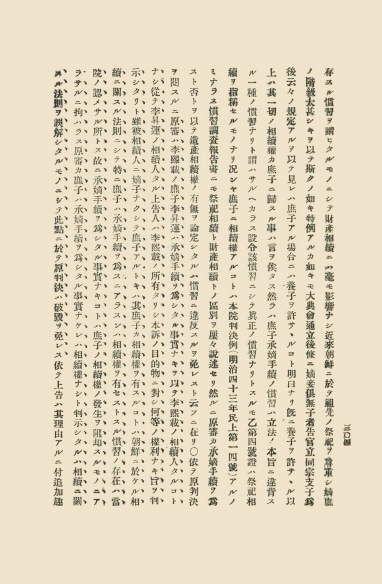 存スル慣習ヲ謂ヒタルモノニシテ財產相續ニハ毫モ影響ナシ近來朝鮮ニ於テ祖先ノ祭祀ヲ尊重シ嫡庶
ノ階級太甚シキヲ以テ斯クノ如キ特例アルカ如キモ大典會通立後條ニ嫡妾俱無子者告官立同宗支子爲
後云々ノ規定アルヲ以テ見レハ庶子アル場合ニハ養子ヲ許サヽルコト明白ナリ旣ニ養子ヲ許サヽル以
上ハ其一切ノ相續權カ庶子ニ歸スル事ハ言ヲ俟タス然ラハ庶子承嫡手續ノ慣習ハ立法ノ本旨ニ違背ス
ル一種ノ慣習ナリト謂ハサルヘカラス設令該慣習ニシテ眞正ノ慣習ナリトスルモ乙第四號證ハ祭祀相
續ヲ指稱セルモノナリ況シヤ庶子ニ相續權アルコトハ本院判決例(明治四十三年民上第一四號)アルノ
ミナラス慣習調查報吿書ニモ祭祀相續ト財產相續トノ區別ヲ屢々說述セリ然ルニ原審カ承嫡手續ヲ爲
スト否トヲ以テ遺產相續權ノ有無ヲ論定シタルハ慣習ニ違反スルヲ免レスト云フニ在リ〇依テ原判決
ヲ閱スルニ原審ハ李熙載ノ庶子李昇運ノ承嫡手續ヲ爲シタル事實ナキヲ以テ李熙載ノ相續人タルコト
ナシ從テ李昇運ノ相續人タル上吿人ハ李熙載ノ所有タリシ本訴ノ目的物ニ對シ何等ノ權利ナキ旨ヲ判
示シタリト雖被相續人ニ嫡子ナクシテ庶子アルトキハ其庶子カ相續權ヲ有スルコトハ朝鮮ニ於ケル相
續ニ關スル法則ニシテ特ニ庶子ハ承嫡手續ヲ爲スニアラスンハ相續權ヲ有セストスル慣習ノ存在ハ當
院ノ認メサル所トス故ニ承嫡手續ヲ爲シタル事實ナキコトハ庶子ノ相續權ノ發生ヲ阻却スルモノニア
ラサルニ拘ハラス原審カ庶子ハ承嫡手續ヲ爲シタル事實ナケレハ相續權ナシト判示シタルハ相續ニ關
スル法則ヲ誤解シタルモノニシテ此點ニ於テ原判決ハ破毀ヲ免レス依テ上吿ハ其理由アルニ付追加趣